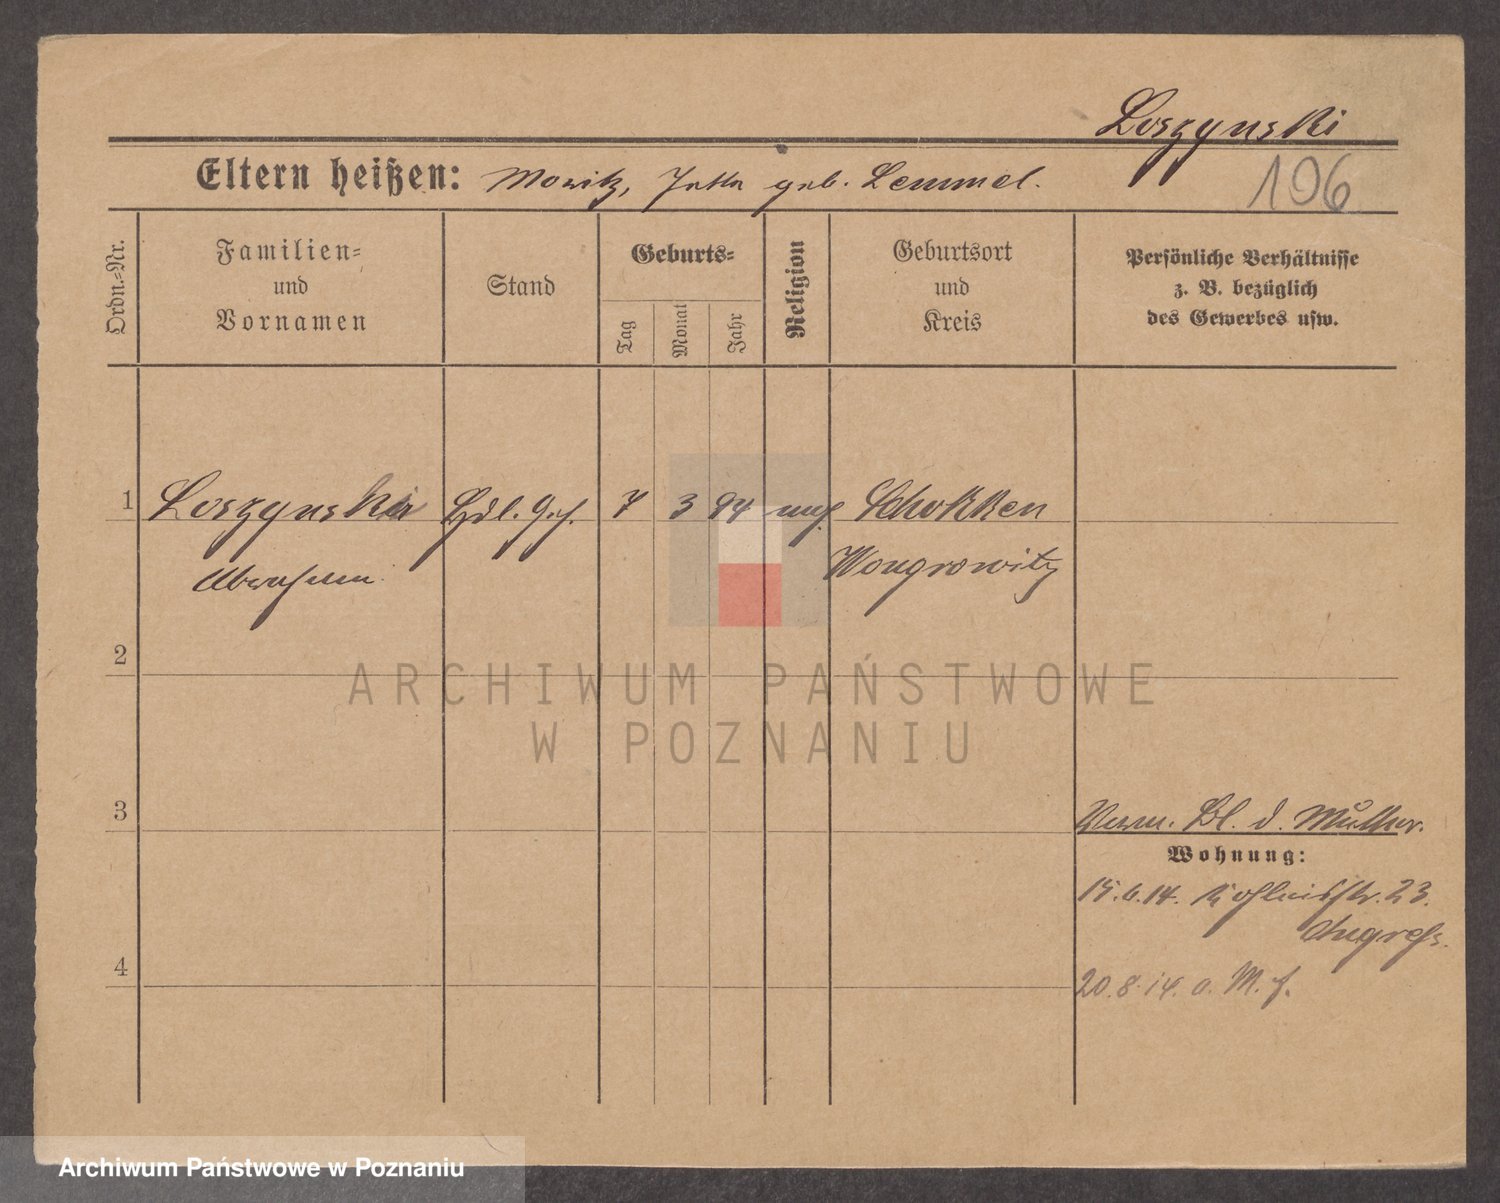 Loszynski
Eltern heißen: Moritz, Jetka geb. Lemmel.
196
Ordn.-Nr.
Familien-
und
Vornamen
Stand
Geburts-
Tag
Monat
Jahr
Religion
Geburtsort
und
Kreis
Persönliche Verhältnisse
z. B. bezüglich
des Gewerbes usw.
1 Loszynski Hdl. Geh. 7 3 94 mos Schokken
Abraham Wongrowitz
2
ARCHIWUM PAŃSTWOWE
W POZNANIU
3
Verm. Bl. d. Mutter.
Wohnung:
15.6.14. 23.
4
20.8.14. a.
Archiwum Państwowe w Poznaniu